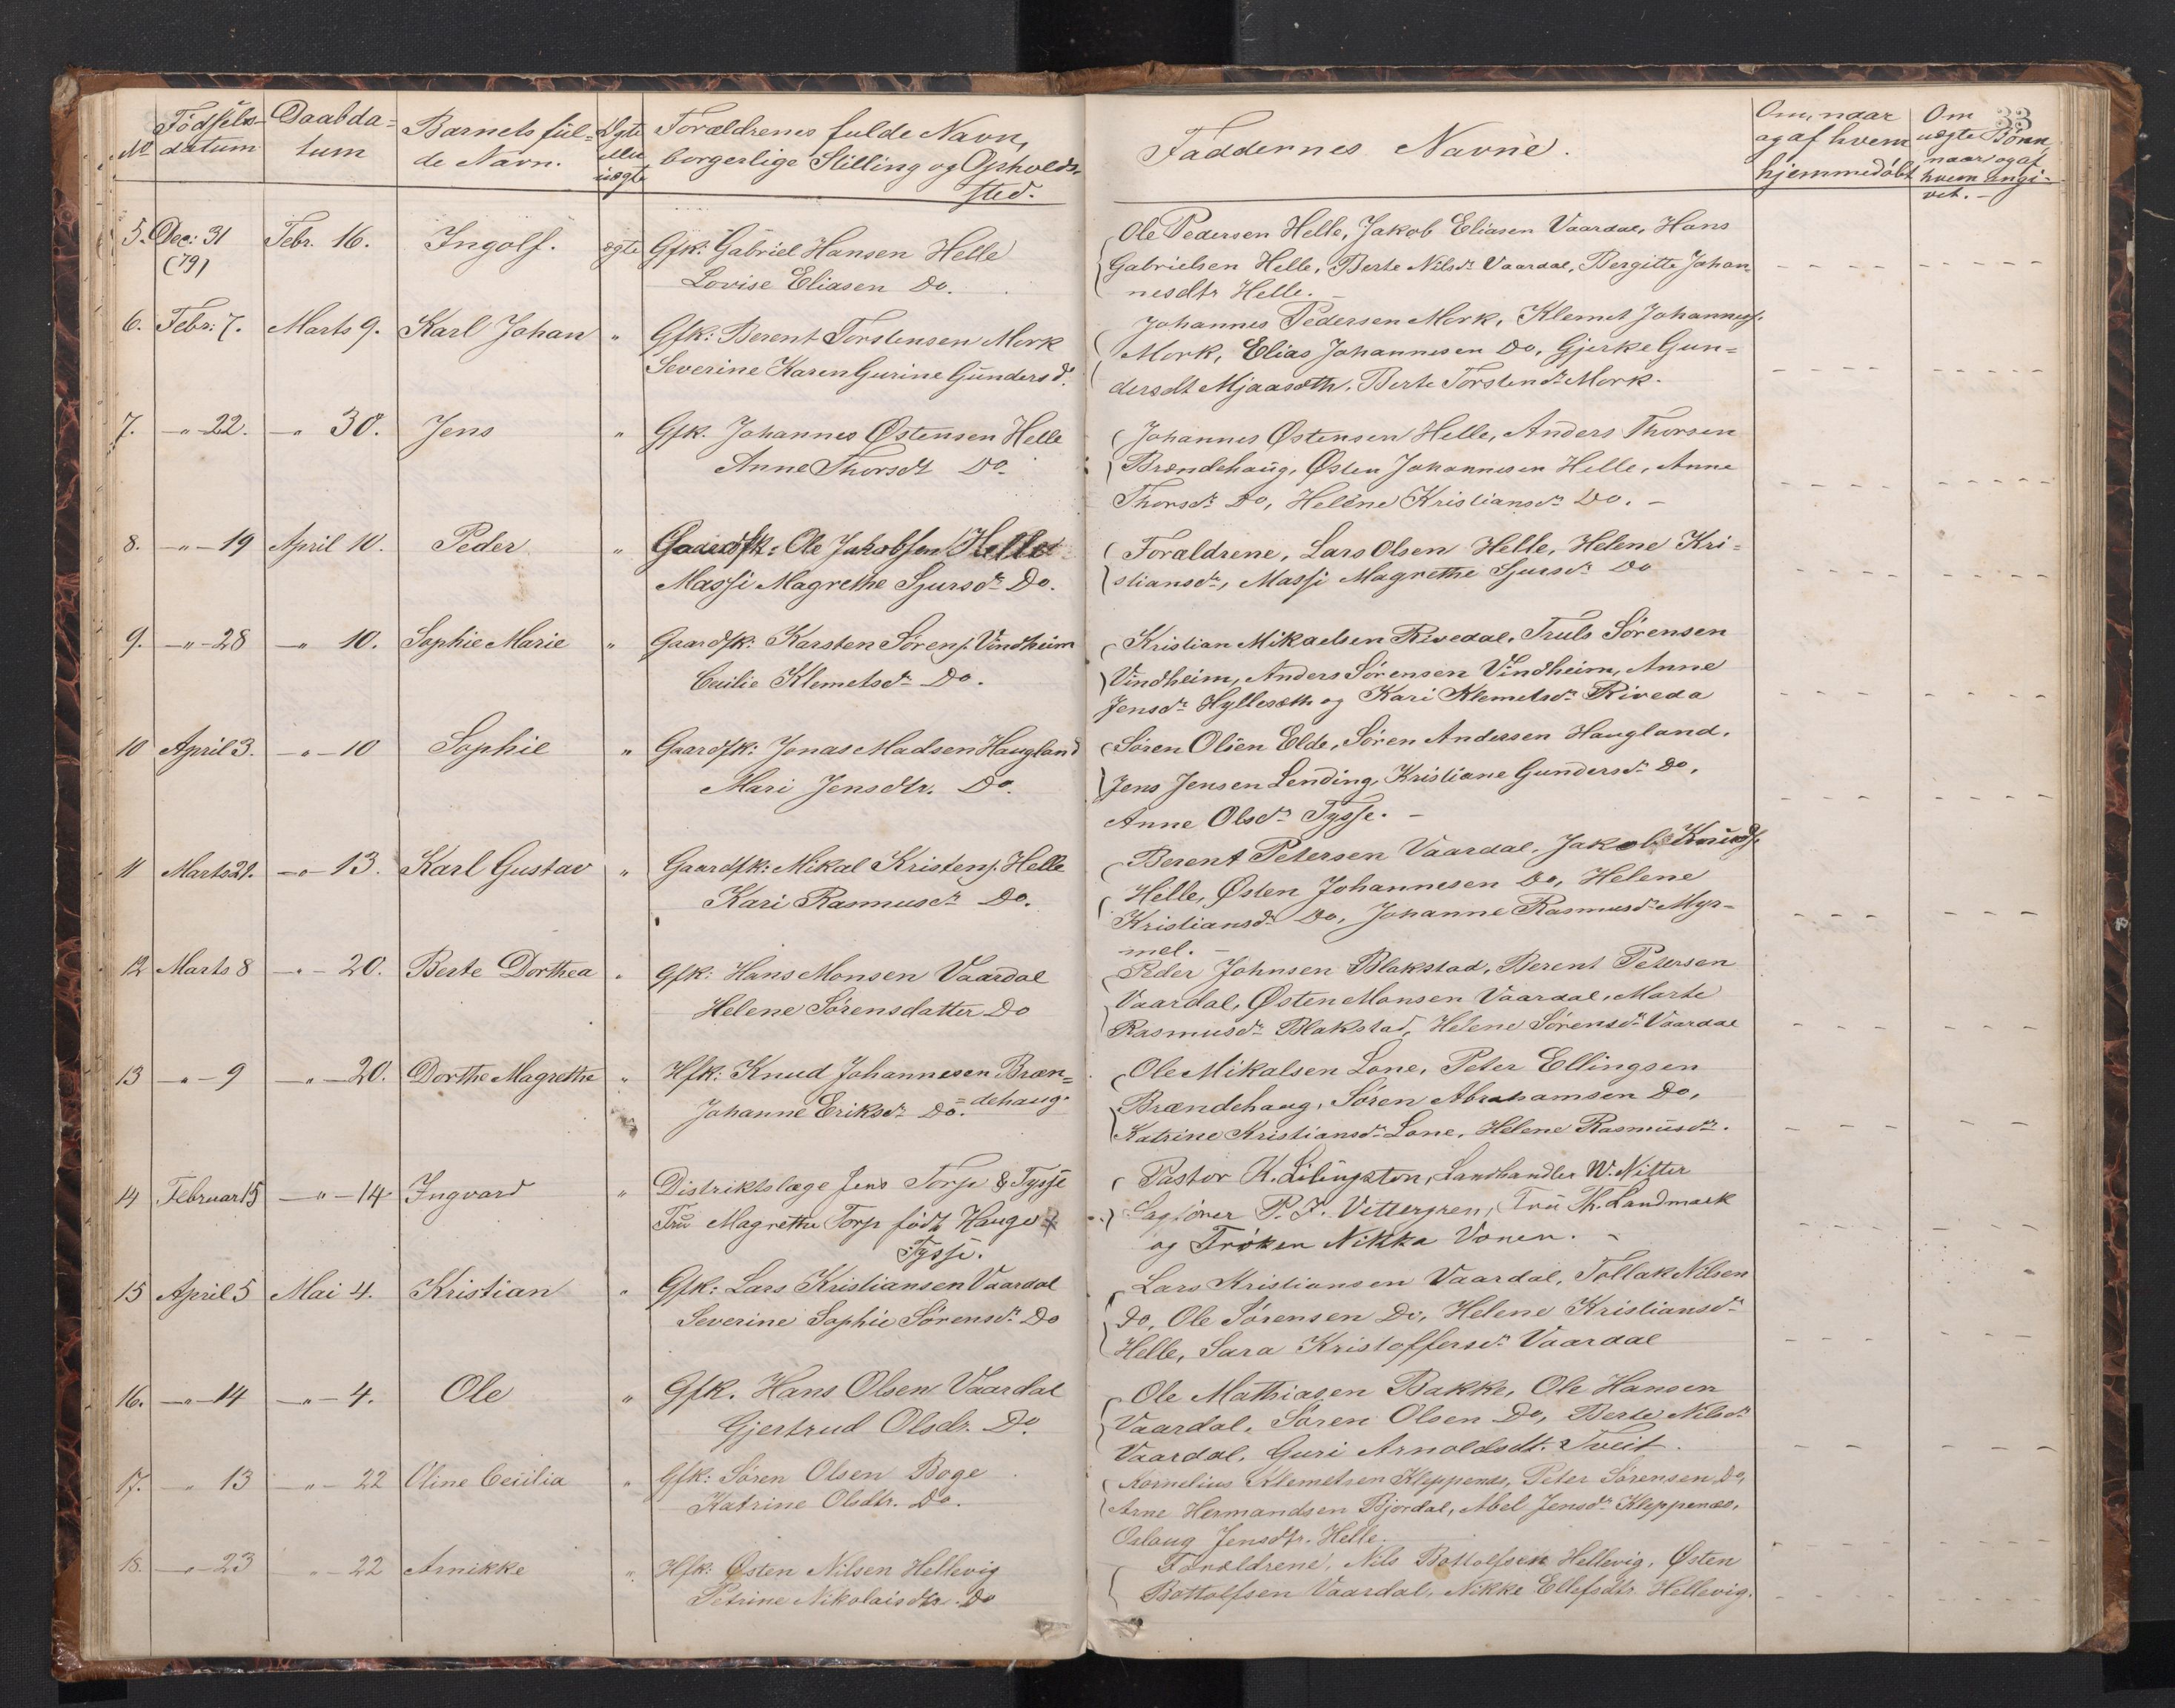 No Födsels- datum Daabda- tum Barnets ful- de Navn. Ægte eller uægte Forældrenes fulde Navn, borgerlige Stilling og Opholds- sted. Faddernes Navne. Om, naar og af hvem hjemmedöbt Om uægte Børn, naar og af hvem angi- vet. 33
5. Dec: 31 (79) Febr. 16. Ingolf. ægte Gfk: Gabriel Hansen Helle
Lovise Eliasen Do.
Ole Pedersen Helle, Jakob Eliasen Vaardal, Hans
Gabrielsen Helle, Berte Nilsdr Vaardal, Bergitte Johan-
nesdtr Helle. -
6. Febr: 7. Marts 9. Karl Johan " Gfk: Berent Torstensen Mork
Severine Karen Gurine Gundersd.
Johannes Pedersen Mork, Klemet Johannesf.
Mork, Elias Johannesen Do, Gjerke Gun-
dersdt Mjaasæth, Berte Torstendr Mork.
7. -"- 22. -" 30. Jens " Gfk. Johannes Østensen Helle
Anne Thorsdt Do.
Johannes Østensen Helle, Anders Thorsen
Brændehaug, Østen Johannesen Helle, Anne
Thorsdr Do, Helene Kristiansdr Do. -
8. -"- 19 April 10. Peder " Gaardfk: Ole Jakobsen Helle
Massi Magrethe Sjursdr Do.
Forældrene, Lars Olsen Helle, Helene Kri-
stiansdr, Massi Magrethe Sjursdr Do
9. -"- 28 -" 10. Sophie Marie " Gaardfk: Karsten Sørens. Vindheim
Cecilie Klemetsdr Do.
Kristian Mikaelsen Rivedal, Truls Sörensen
Vindheim, Anders Sörensen Vindheim, Anne
Jensdr Hyllesæth og Kari Klemetsdr Riveda
10 April 3. -"- 10 Sophie " Gaardfk: Jonas Madsen Haugland
Mari Jensdtr. Do.
Sören Olsen Elde, Sören Andersen Haugland,
Jens Jensen Lending, Kristiane Gundersdr Do,
Anne Olsdr Tysse. -
11 Marts 21. -"- 13. Karl Gustav " Gaardfk: Mikal Kristens. Helle
Kari Rasmusdr Do.
Berent Petersen Vaardal, Jakob Knuds.
Helle, Østen Johannesen Do, Helene
Kristiansdr Do, Johanne Rasmusdr Myr-
mel. -
12 Marts 8 -"- 20. Berte Dorthea " Gfk: Hans Monsen Vaardal
Helene Sørensdatter Do
Peder Johnsen Blakstad, Berent Petersen
Vaardal, Østen Monsen Vaardal, Marte
Rasmusdr Blakstad, Helene Sørensdr Vaardal
13 -"- 9 -"- 20. Dorthe Magrethe " Hfk: Knud Johannesen Bræn-
Johanne Eriksdr Do. -dehaug.
Ole Mikalsen Lone, Peter Ellingsen
Brændehaug, Sören Abrahamsen Do,
Katrine Kristiansdr Lone, Helene Rasmusdr.
14 Februar 15 -"- 14 Ingvard " Distriktslæge Jens Torp & Tysse
Fru Magrethe Torp født Hauge
Tysse.
Pastor K. Lilingston, Landhandler W. Nitter
Sagfører P. J. Vittergren, Fru Th. Landmark
og Frøken Nikka Vonen. -
15 April 5 Mai 4. Kristian " Gfk: Lars Kristiansen Vaardal
Severine Sophie Sörensdr Do
Lars Kristiansen Vaardal, Tollak Nilsen
Do, Ole Sørensen Do, Helene Kristiansdr
Helle, Sara Kristoffersdr Vaardal
16. -"- 14 -"- 4. Ole " Gfk. Hans Olsen Vaardal
Gjertrud Olsdr. Do.
Ole Mathiasen Bakke, Ole Hansen
Vaardal, Sören Olsen Do, Berte Nilsdr
Vaardal, Guri Arnoldsdt. Tveit.
17. -" 13 -"- 22 Oline Cecilia " Gfk: Søren Olsen Boge
Katrine Olsdtr. Do.
Kornelius Klemetsen Kleppenæs, Peter Sørensen Do,
Arne Hermandsen Bjordal, Abel Jensdr Kleppenæs,
Oslaug Jensdtr. Helle.
18. -"- 23 -"- 22 Arnikke " Hfk: Østen Nilsen Hellevig
Petrine Nikolaisdtr. Do
Forældrene, Nils Bottolfsen Hellevig, Østen
Bottolfsen Vaardal, Nikke Ellefsdtr. Hellevig.